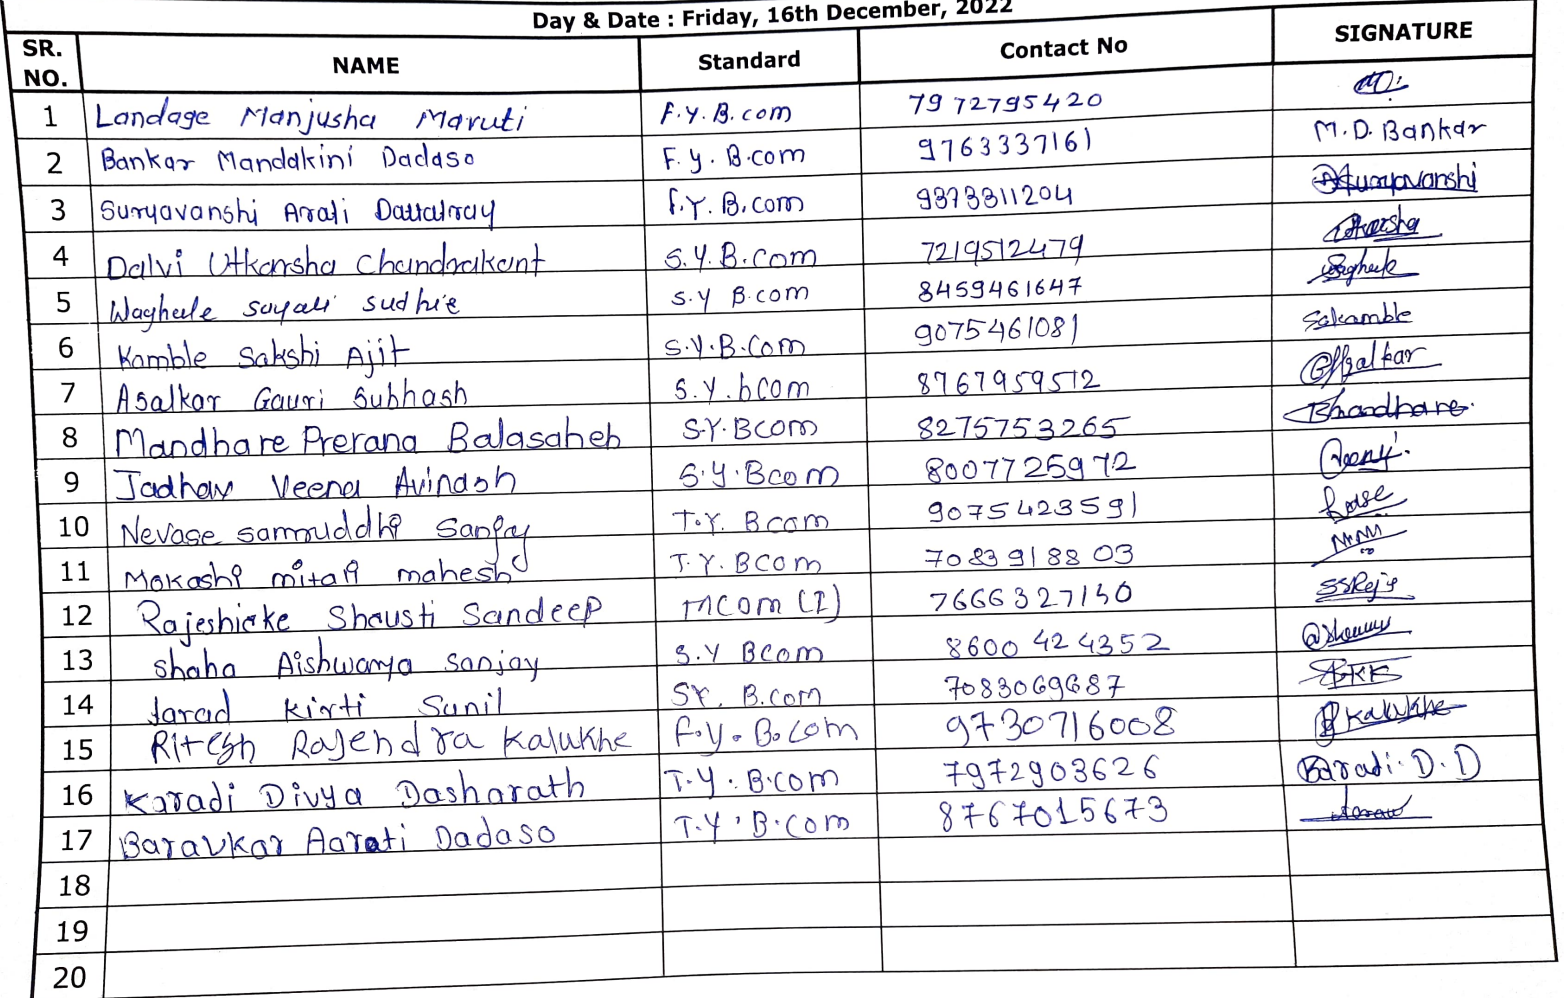 Day & Date : Friday, 16th December, 2022
SR. NO. NAME Standard Contact No SIGNATURE
1 Landage Manjusha Maruti F.Y.B.com 7972795420
2 Bankar Mandakini Dadaso F.y.B.com 9763337161 M.D.Bankar
3 Suryavanshi Arati Dattatray F.Y.B.com 9373311204 Asuryavanshi
4 Dalvi Utkarsha Chandrakant S.Y.B.com 7219512479
5 Waghule sayali sudhir S.Y B.com 8459461647
6 Kamble Sakshi Ajit S.Y.B.Com 9075461081 Sakamble
7 Asalkar Gauri Subhash S.Y.bcom 8767959512
8 Mandhare Prerana Balasaheb S.Y.Bcom 8275753265
9 Jadhav Veena Avinash S.y.Bcom 8007725972
10 Nevase samruddhi Sanjay T.Y. Bcom 9075423591
11 Mokashi mitali mahesh T.Y. BCom 7083918803
12 Rajeshirke Shrusti Sandeep MCom (I) 7666327140
13 shaha Aishwarya sanjay S.Y Bcom 8600424352
14 Jarad Kirti Sunil SY. B.com 7083069687
15 Ritesh Rajendra Kalukhe F.y.B.com 9730716008 Rkalukhe
16 Karadi Divya Dasharath T.Y.B.com 7972903626 Karadi.D.D
17 Baravkar Aarati Dadaso T.Y.B.com 8767015673
18
19
20